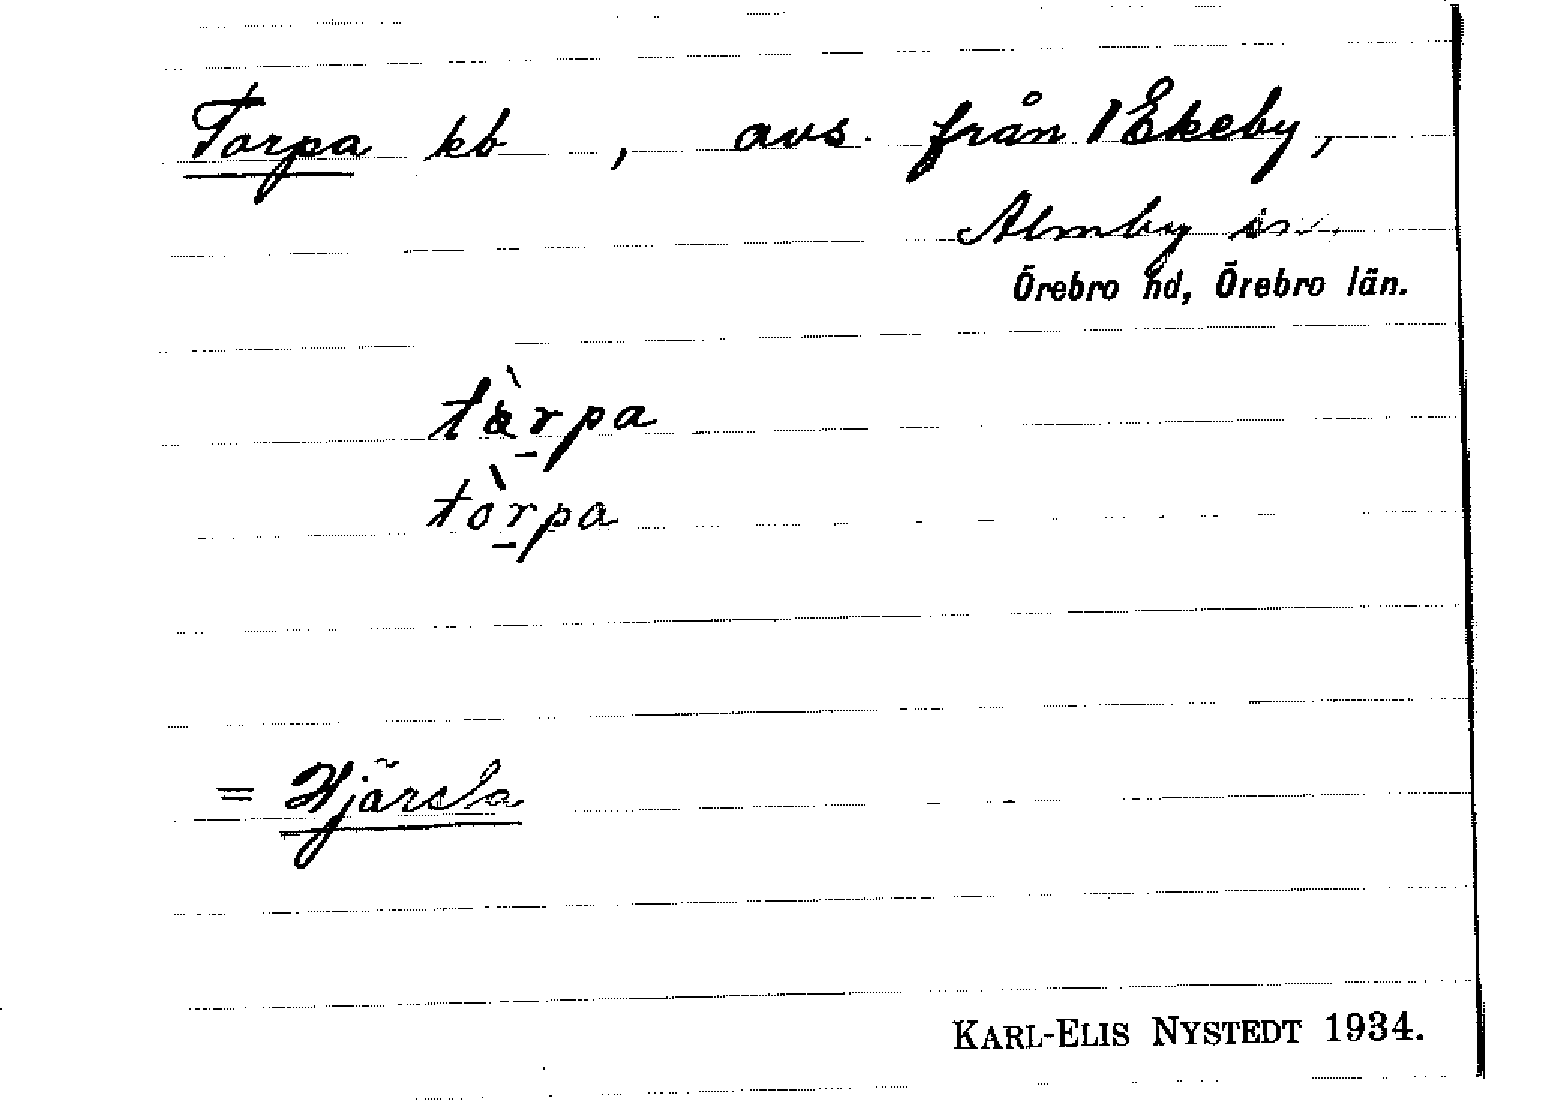 Torpa kb , avs. från 1 Ekeby,
Almby sn.
Örebro hd, Örebro län.
tàrpa
tòrpa
= Hjärsta
KARL-ELIS NYSTEDT 1934.